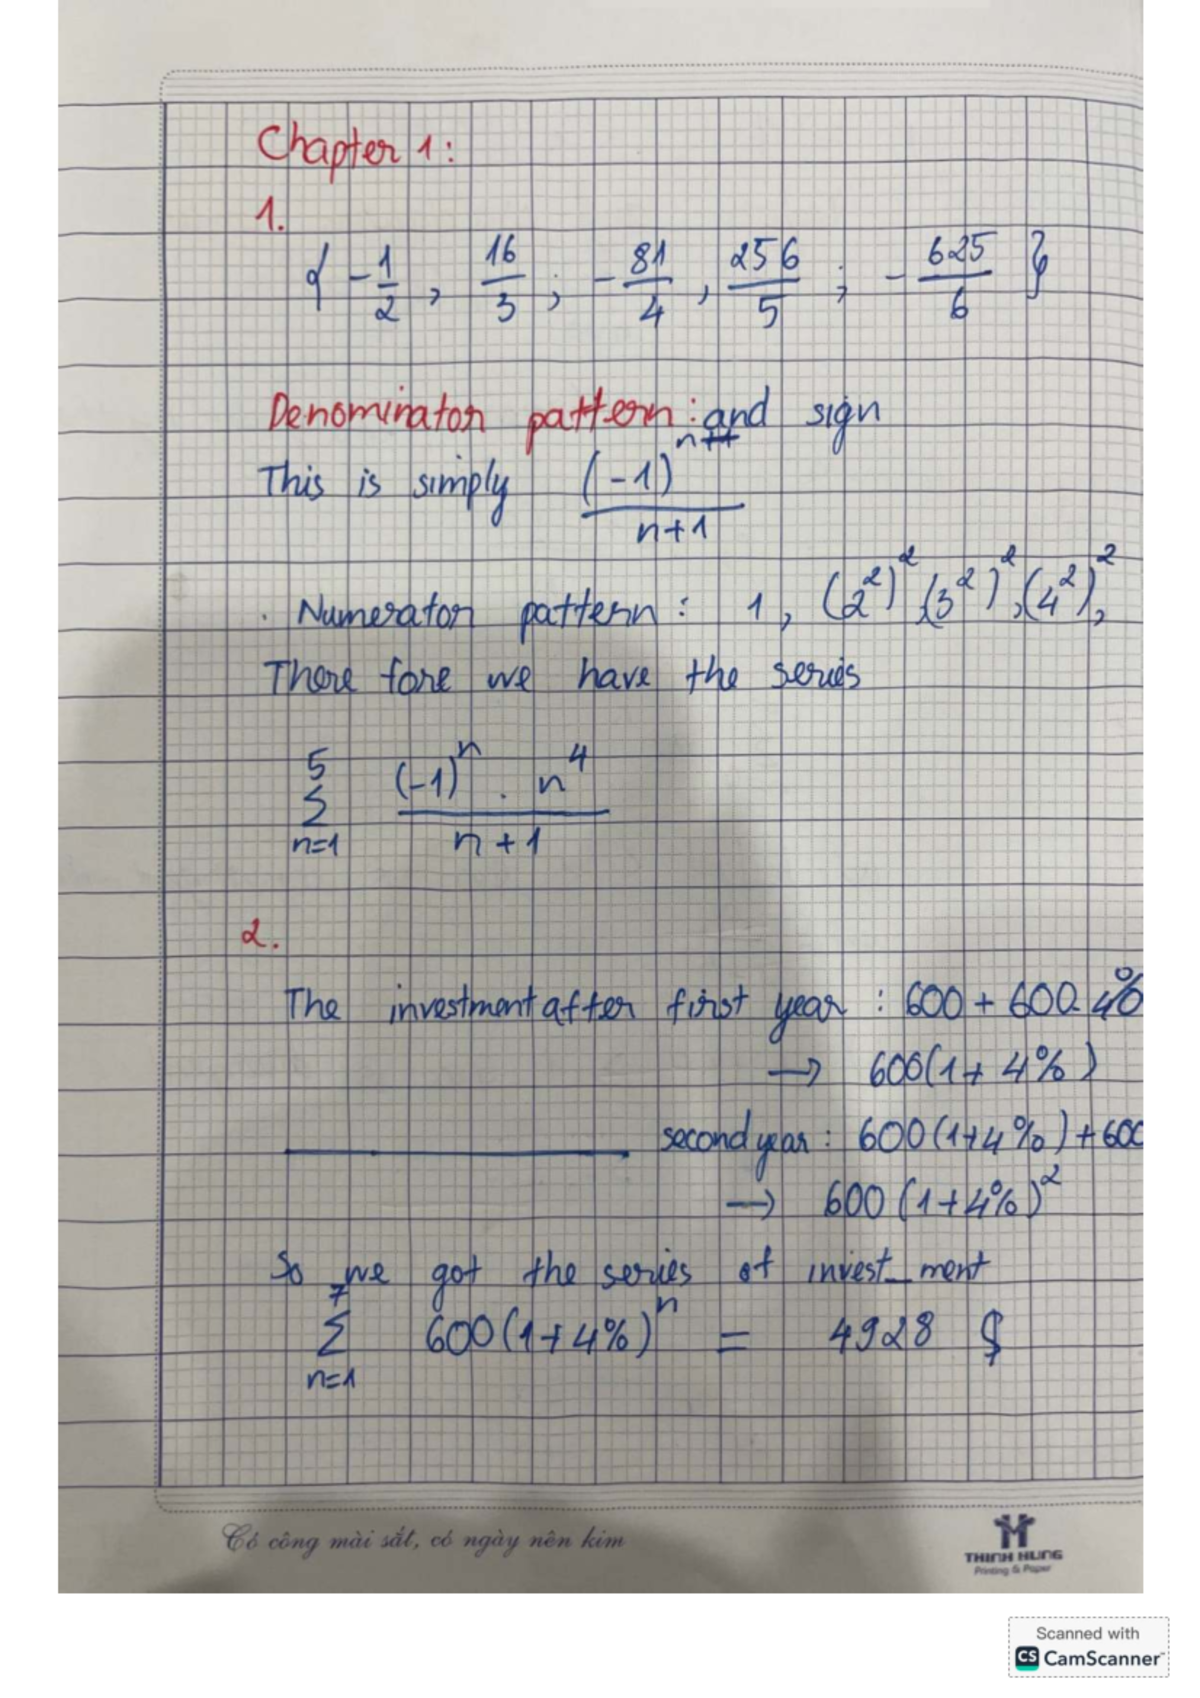 Chapter 1:
1.
{ -1/2 , 16/3 ; -81/4 , 256/5 ; -625/6 }
Denominator pattern: and sign
This is simply (-1)^n / n+1
. Numerator pattern : 1 , (2²)² , (3²)² , (4²)² ,
There fore we have the series
5 ∑ n=1 (-1)^n . n^4 / n+1
2.
The investment after first year : 600 + 600. 4%
→ 600(1+ 4%)
second year : 600(1+4%) + 600
→ 600 (1+4%)²
So we got the series of invest_ment
7 ∑ n=1 600(1+4%)^n = 4928 $
Có công mài sắt, có ngày nên kim
THINH HUNG
Printing & Paper
Scanned with
CS CamScanner